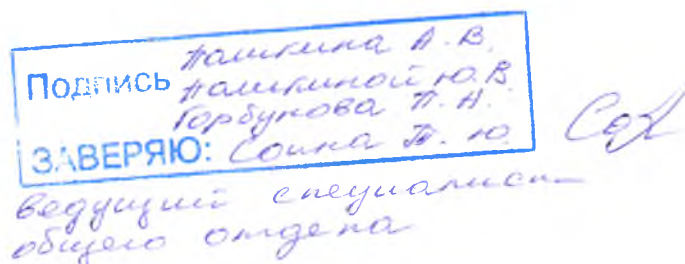 Подпись Пашкина А. В.
Пашкиной Ю. В.
Горбунова П. Н.
ЗАВЕРЯЮ: Соина Т. Ю.
ведущий специалист
общего отдела